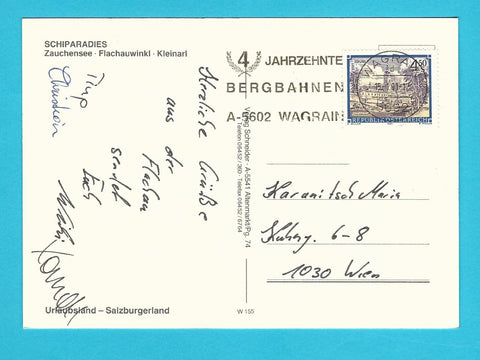 SCHIPARADIES
Zauchensee · Flachauwinkl · Kleinarl
Herzliche Grüße
aus der
Flachau
sendet
Euch
Christian
Urlaubsland – Salzburgerland
Verlag Schneider · A-5541 Altenmarkt/Pg. 74
Telefon 06452 / 369 · Telefax 06452 / 6764
W 155
4 JAHRZEHNTE
BERGBAHNEN
A-5602 WAGRAIN
WAGRAIN
4.50
REPUBLIK ÖSTERREICH
Karanitsch Maria
6-8
1030 Wien